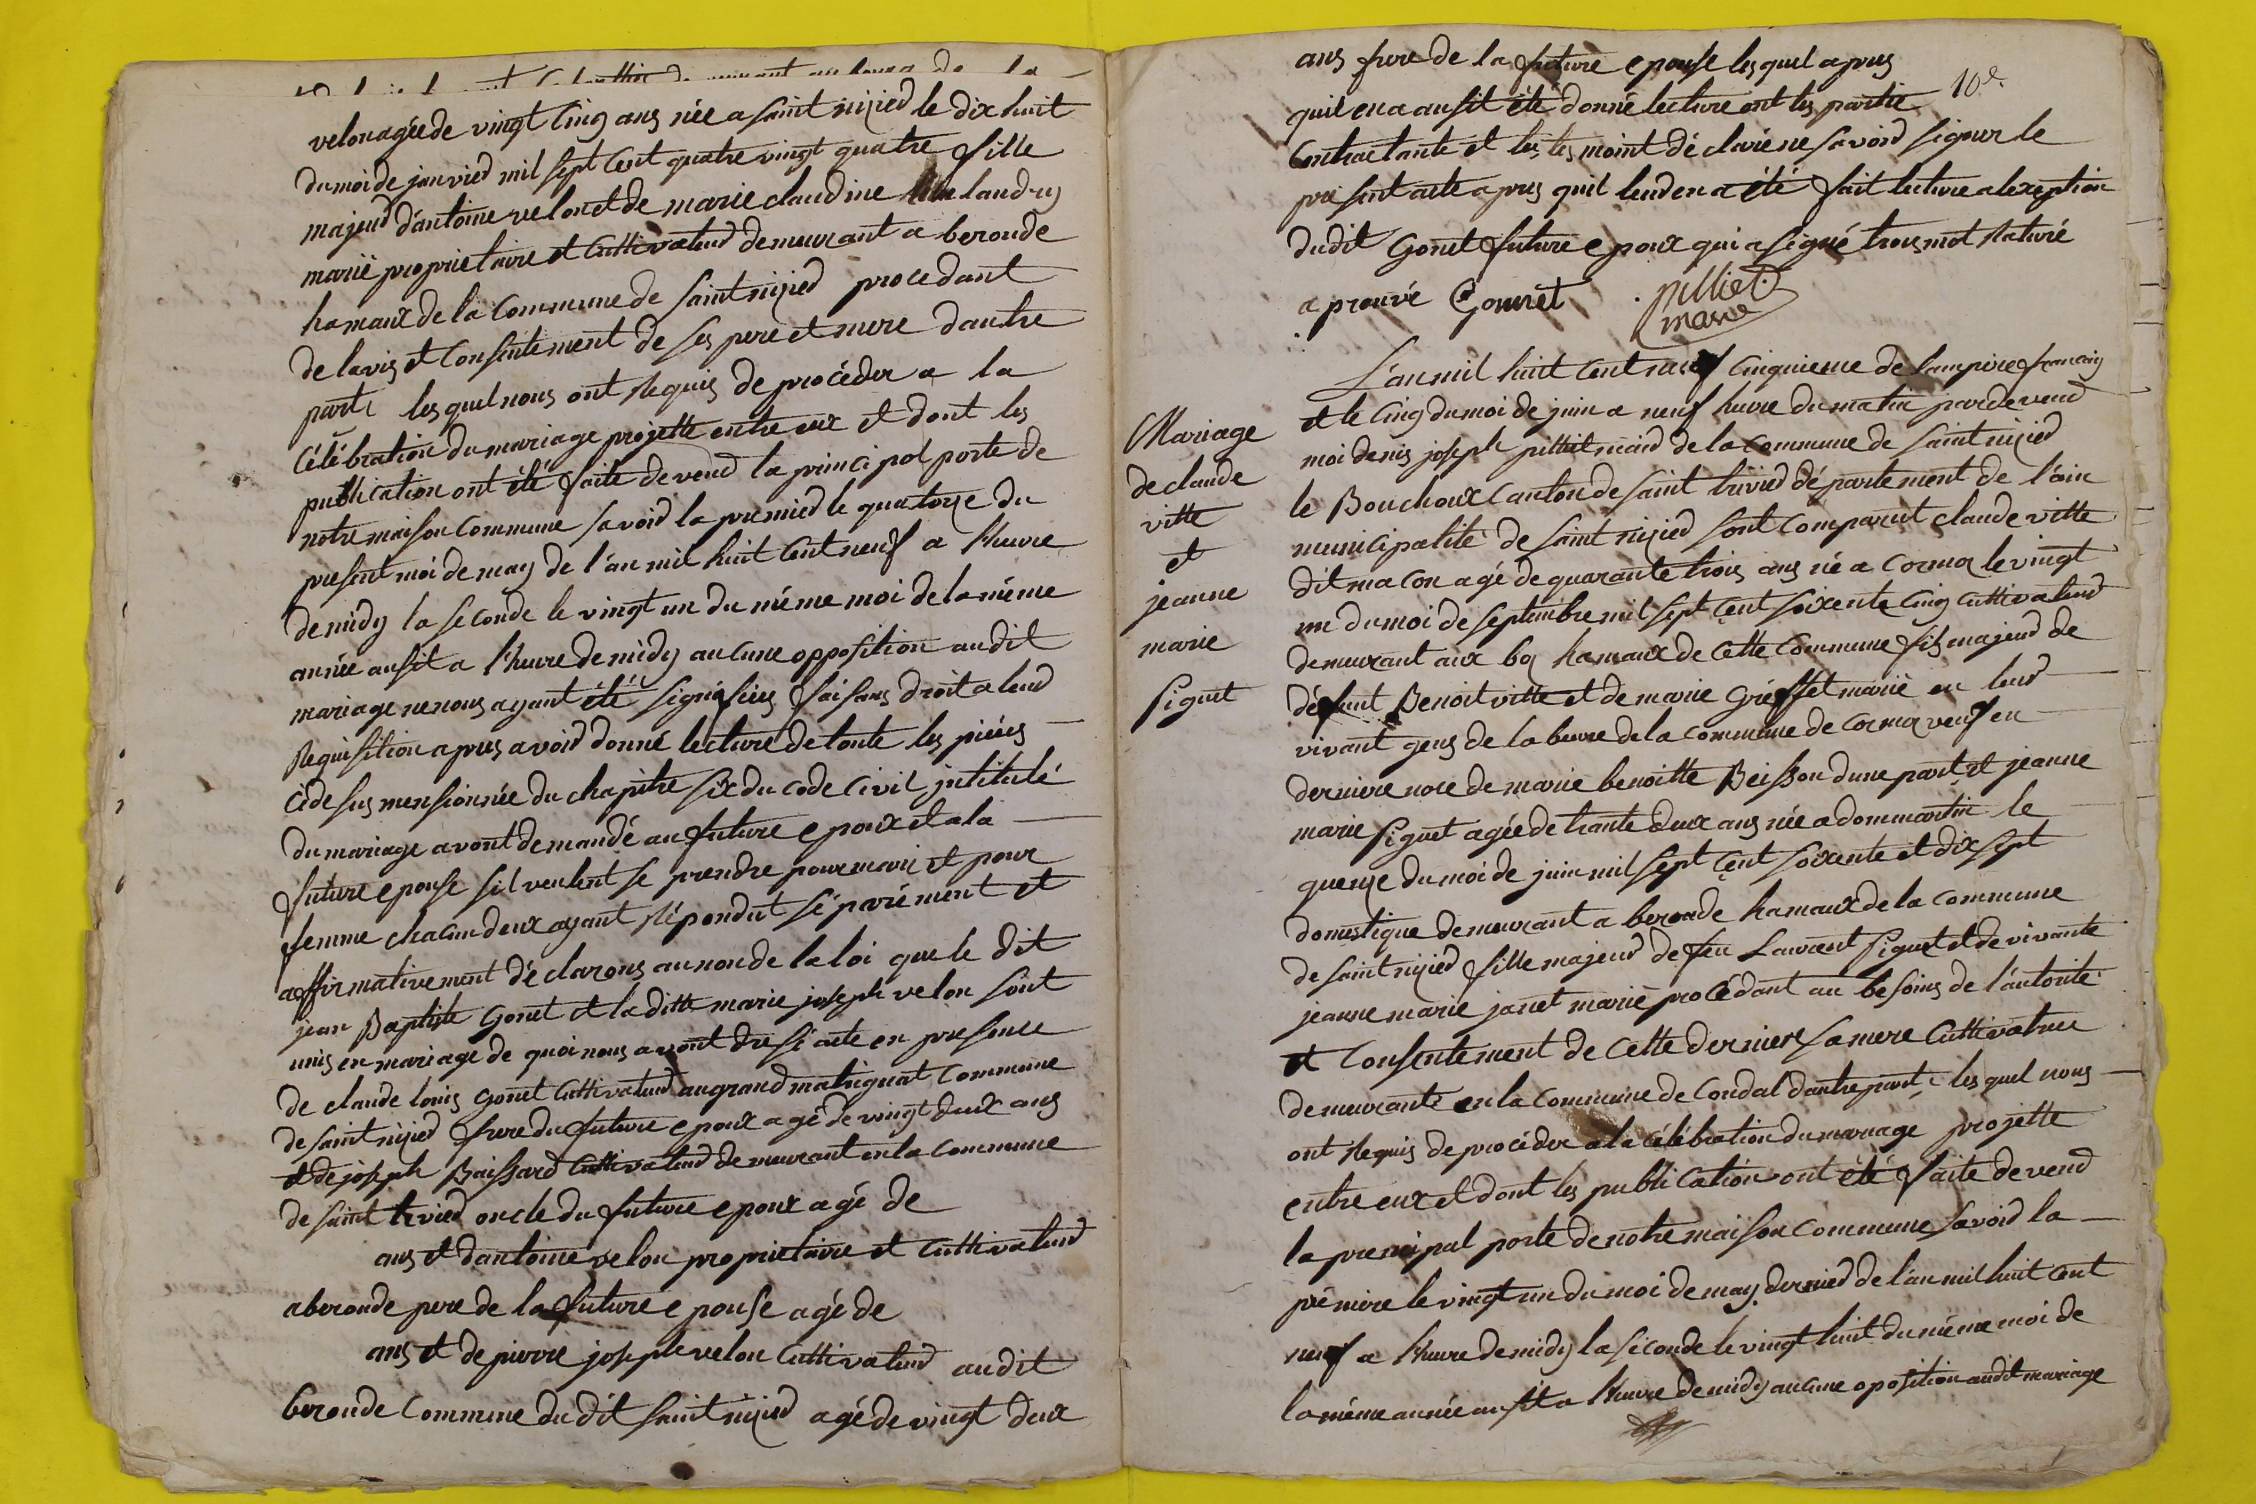 velon agée de vingt Cinq ans née a saint nizied le dix huit
du moi de janvied mil sept Cent quatre vingt quatre fille
majeud d'antoine velon et de marie claudine landry
marié proprietaire et Cultivateud demeurant a beronde
hamaux de la Commune de saint nizied procedant
de lavis et Consentement de ses pere et mere dautre
part les quel nous ont Requis de procéder a la
Célébration du mariage projetté entre eux et dont les
publication ont été faite devend la principal porte de
notre maison Commune savoid la premied le quatorze du
present moi de may de l'an mil huit Cent neuf a l'heure
de midy la seconde le vingt un du méme moi de la méme
année ausit a l'heure de midy aucune opposition audit
mariage ne nous ayant été signifiées faisans droit a leud
Requisition apres avoid donné lecture de toute les piéces
cidesus mensionnée du chapitre six du code Civil jntitulé
du mariage avont demandé au future epoux et a la
future epouse sil veulent se prendre pour mari et pour
femme chacun deux ayant Répondut séparément et
affirmativement déclarons au nom de la loi que le dit
jean Baptiste Gonet et la ditte marie joseph velon sont
unis en mariage de quoi nous avont dressé acte en presence
de claude louis gonet Cultivateud au grand malignat Commune
de saint nizied frere du future epoux agé de vingt deux ans
et de joseph Baissard Cultivateud demeurant en la Commune
de saint trivied oncle du future epoux agé de
ans et d'antoine velon proprietaire et Cultivateud
a beronde pere de la future epouse agé de
ans et de pierre joseph velon Cultivateud audit
beronde Commune du dit saint nizied agé de vingt deux
ans frere de la future epouse les quel apres
10e
quil en a ausit été donné lecture ont les partie
Contractante et les tesmoint déclaré ne savoid signer le
present acte apres quil leud en a été fait lecture a lexeption
dudit Gonet future epoux qui a signé trois mot Raturé
a prouvé Gonnet pilliet
maire
Mariage
de claude
vitte
et
jeanne
marie
piguet
L'an mil huit Cent neuf Cinquieme de l'ampire francois
et le Cinq du moi de juin a neuf heure du matin pardevend
moi denis joseph pilliet maird de la Commune de saint nizied
le Bouchoux Canton de saint trivied département de l'ain
municipalité de saint nizied sont Comparut claude vitte
dit macon agé de quarante trois ans né a Cormoz le vingt
un du moi de septembre mil sept Cent soixente Cinq Cultivateud
demeurant aux boz hamaux de Cette Commune fis majeud de
défunt Benoit vitte et de marie Gréffet marié en leud
vivant gens de labeure de la Commune de Cormoz veuf en
derniere noce de marie benoitte Beisson dune part et jeanne
marie piguet agée de trante deux ans née a dommartin le
quenze du moi de juin mil sept Cent soixente et dix sept
domestique demeurant a beronde hamaux de la Commune
de saint nizied fille majeud de feu Laurent piguet et de vivante
jeanne marie janet marié procédant au besoins de l'autorité
et Consentement de Cette derniere sa mere Cultivatrice
demeurante en la Commune de Condal dautre part les quel nous
ont Requis de procéder a la Célébration du mariage projetté
entre eux et dont les publication ont été faite devend
la prencipal porte de notre maison Commune savoid la
prémiere le vingt un du moi de may dernied de l'an mil huit Cent
neuf a l'heure de midy la seconde le vingt huit du méme moi de
la méme année ausit a l'heure de midy aucune oposition audit mariage